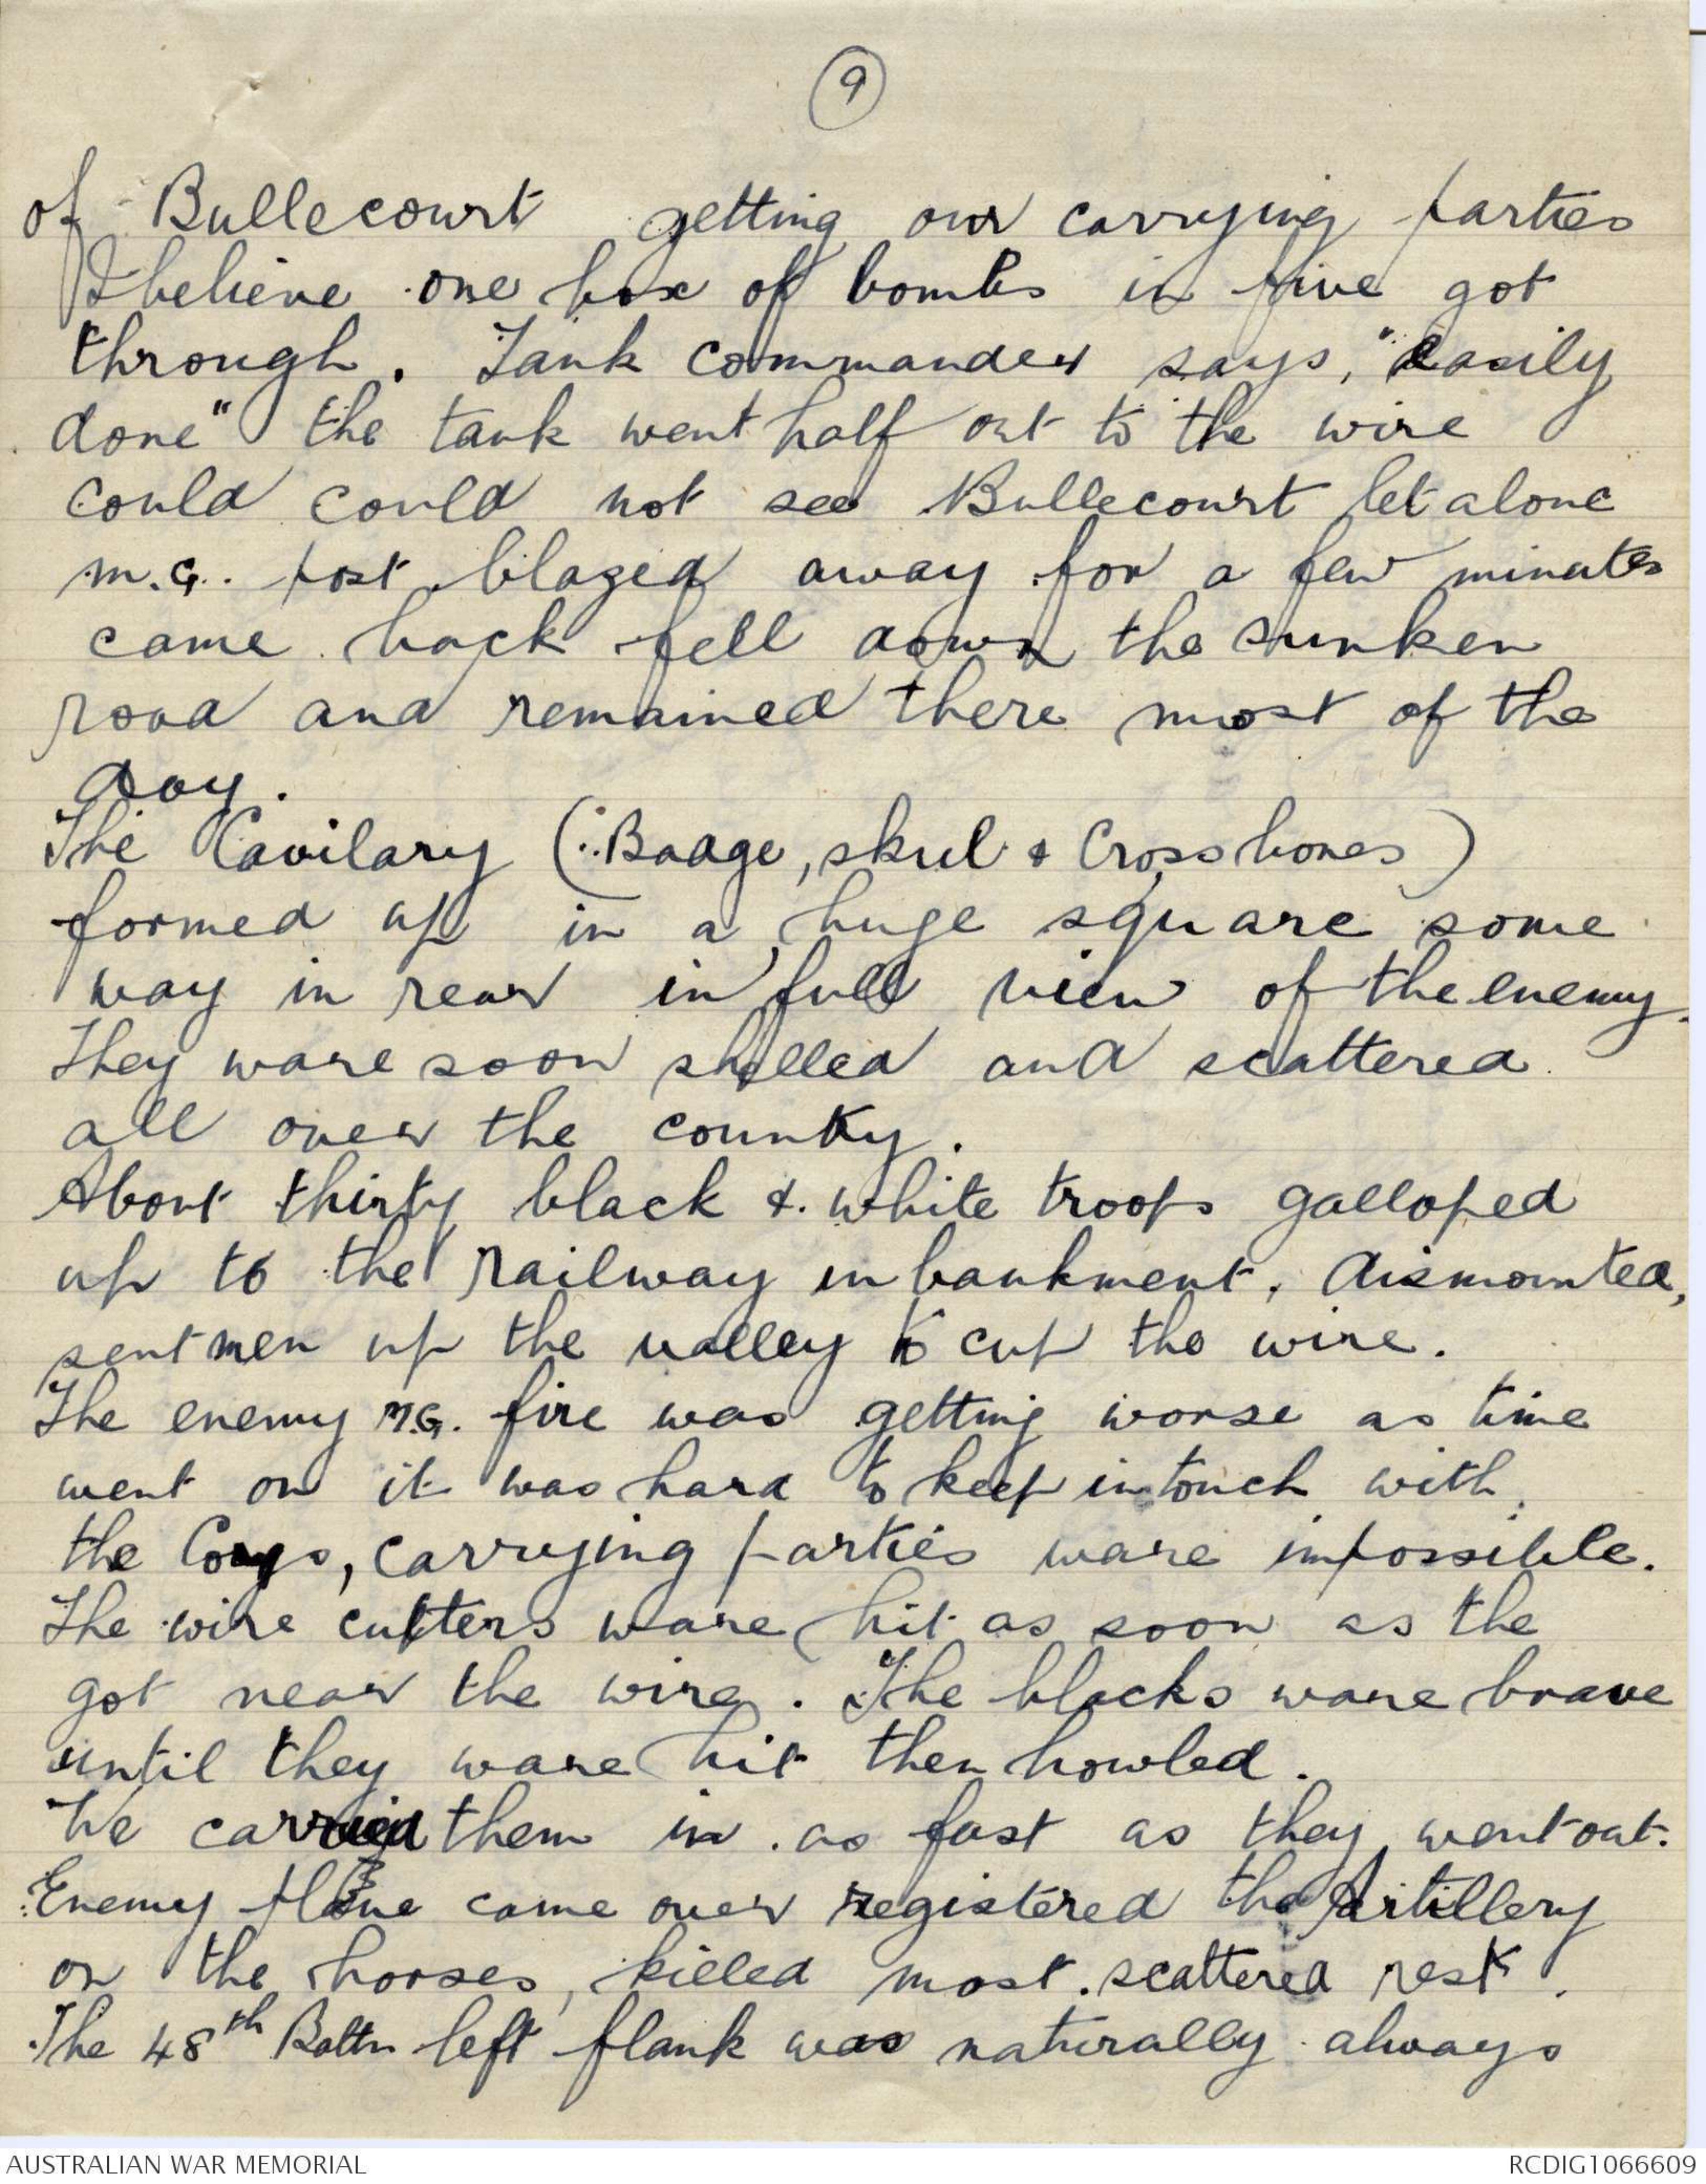 9
of Bullecourt getting our carrying parties
I believe one box of bombs in five got
through. Tank commander says, "easily
done" the tank went half out to the wire
could could not see Bullecourt let alone
m.G. post blazed away for a few minutes
came back fell down the sunken
road and remained there most of the
day.
The Cavilary (Badge, skul & Cross bones)
formed up in a huge square some
way in rear in full view of the enemy.
They ware soon shelled and scattered
all over the country.
About thirty black & white troops galloped
up to the railway inbankment, dismounted,
sent men up the valley to cut the wire.
The enemy M.G. fire was getting worse as time
went on it was hard to keep in touch with
the Coys, carrying parties ware impossible.
The wire cutters ware hit as soon as the
got near the wire. The blacks ware brave
until they ware hit then howled.
We carried them in as fast as they went out.
Enemy plane came over registered the Artillery
on the horses, killed most scattered rest.
The 48th Battn left flank was naturally always
AUSTRALIAN WAR MEMORIAL
RCDIG1066609